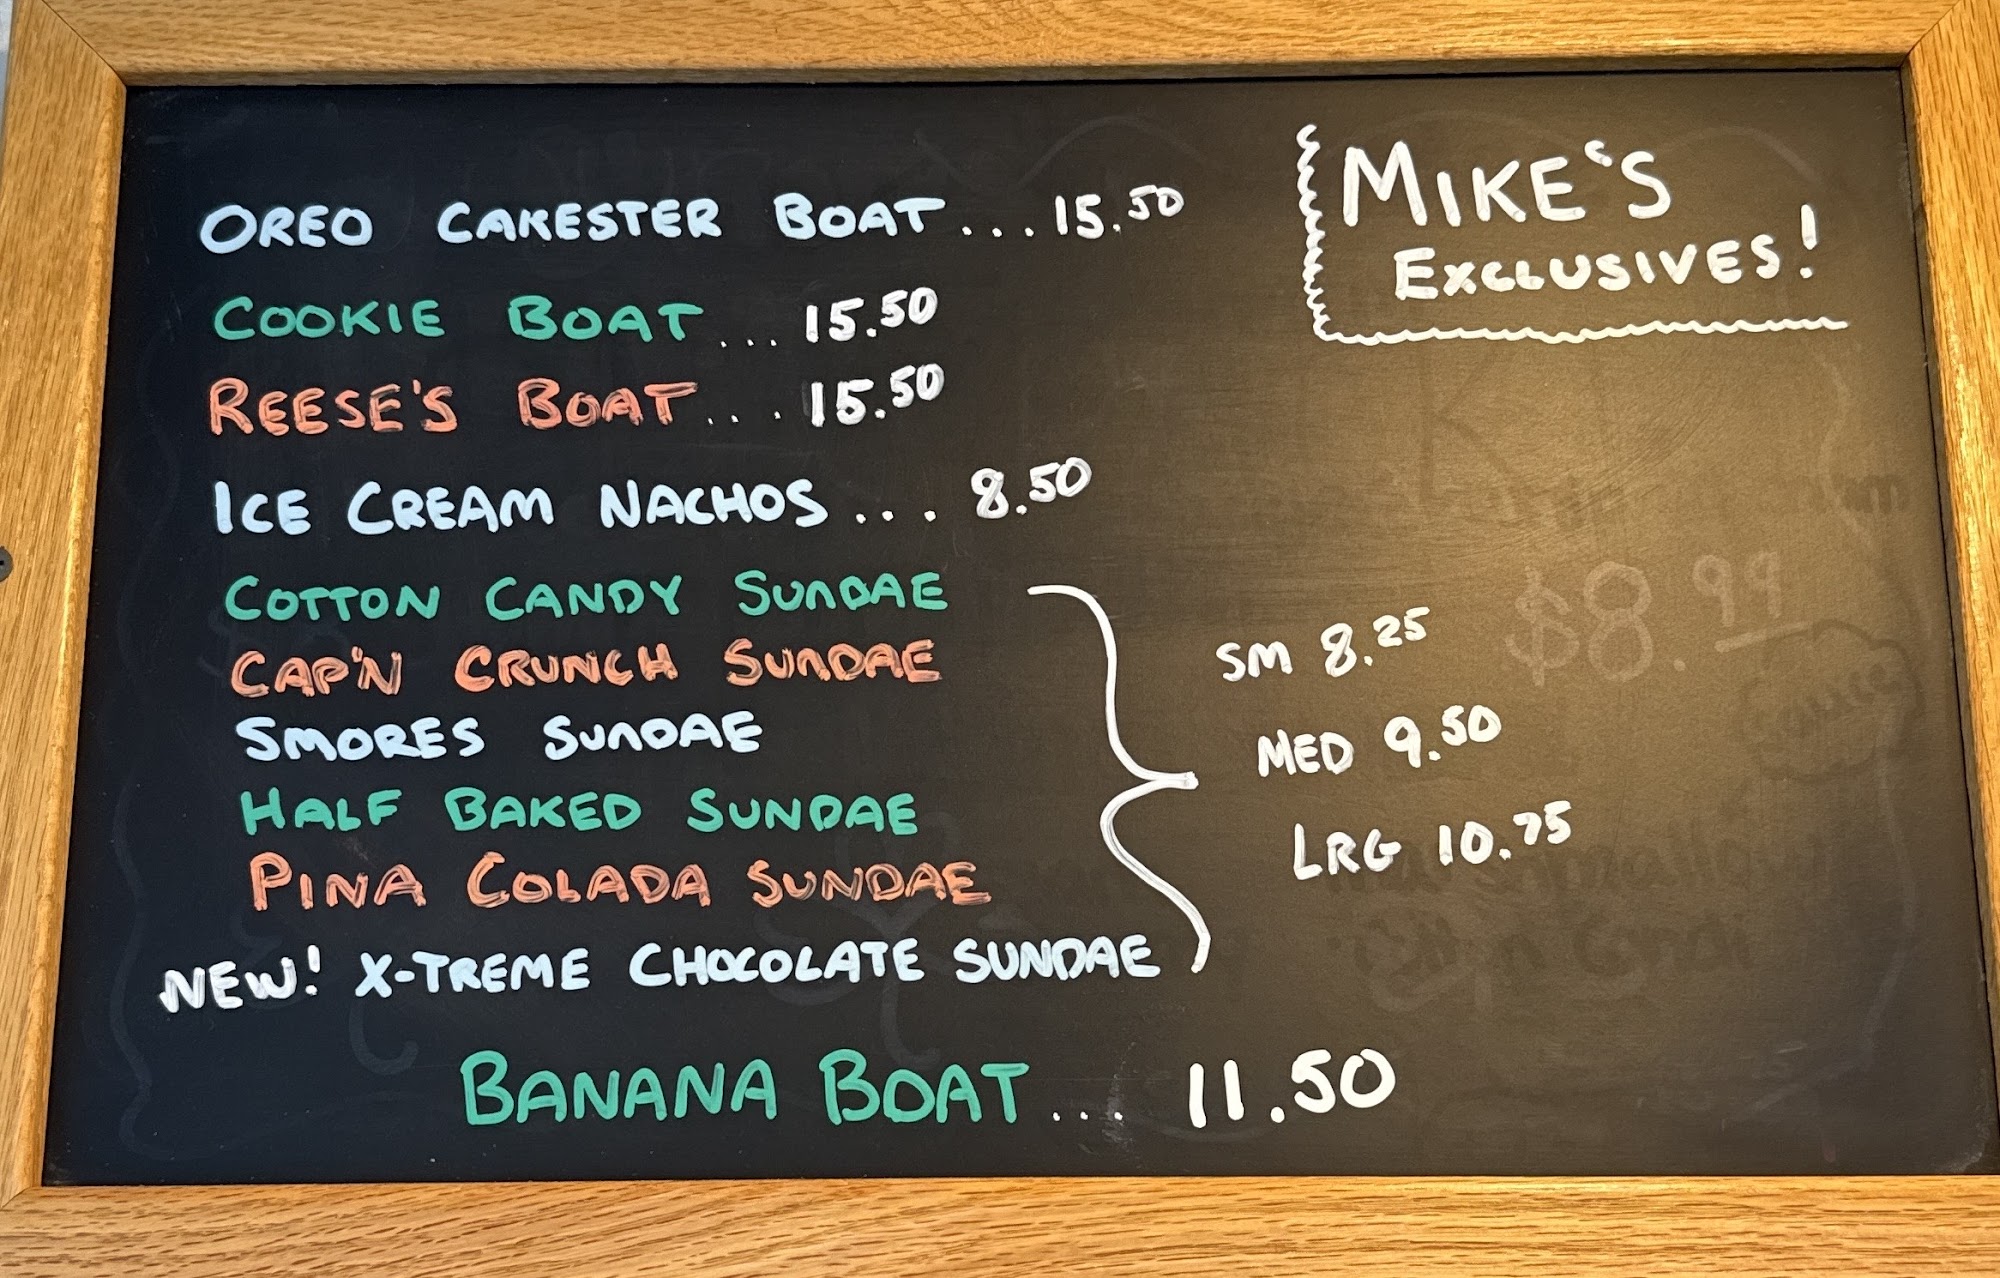 MIKE'S
EXCLUSIVES!
OREO CAKESTER BOAT...15.50
COOKIE BOAT...15.50
REESE'S BOAT...15.50
ICE CREAM NACHOS...8.50
COTTON CANDY SUNDAE
CAP'N CRUNCH SUNDAE
SMORES SUNDAE
HALF BAKED SUNDAE
PINA COLADA SUNDAE
NEW! X-TREME CHOCOLATE SUNDAE
SM 8.25
MED 9.50
LRG 10.75
BANANA BOAT... 11.50
$8.99